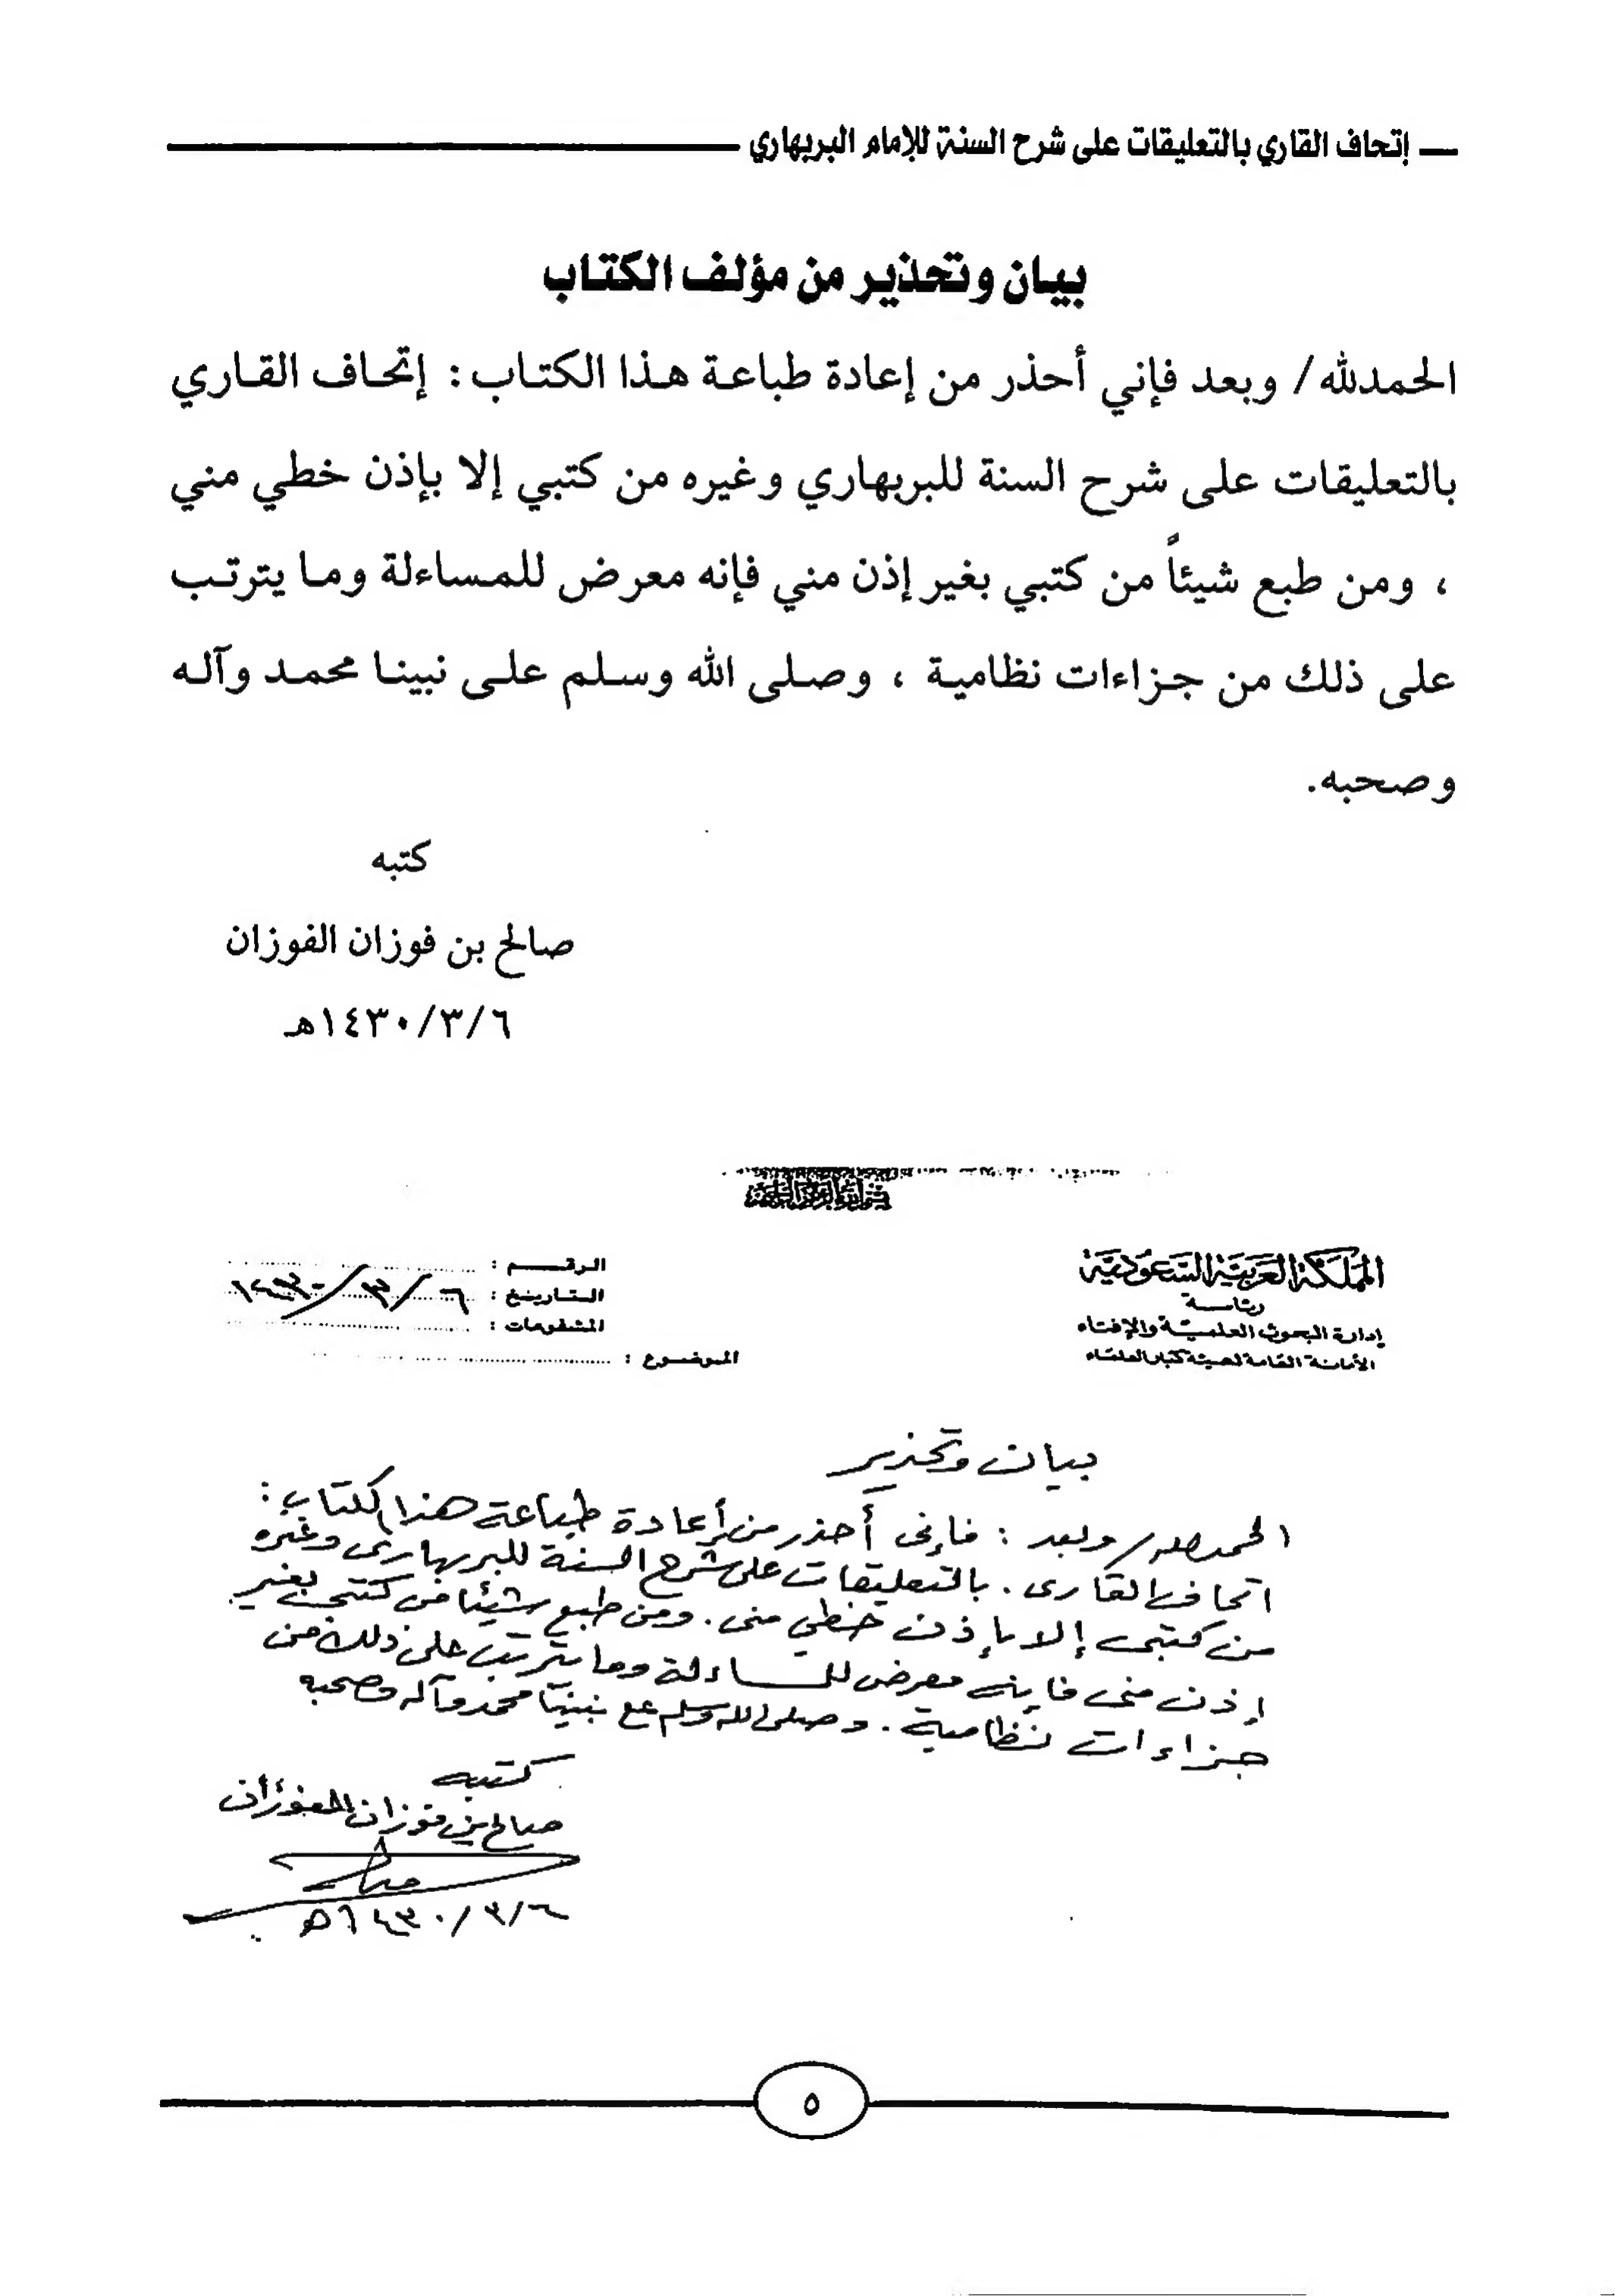 إتحاف القاري بالتعليقات على شرح السنة للإمام البربهاري
بيان وتحذير من مؤلف الكتاب
الحمدلله/ وبعد فإني أحذر من إعادة طباعة هذا الكتاب: إتحاف القاري
بالتعليقات على شرح السنة للبربهاري وغيره من كتبي إلا بإذن خطي مني
، ومن طبع شيئاً من كتبي بغير إذن مني فإنه معرض للمساءلة وما يترتب
على ذلك من جزاءات نظامية ، وصلى الله وسلم على نبينا محمد وآله
وصحبه.
كتبه
صالح بن فوزان الفوزان
١٤٣٠/٣/٦هـ
المملكة العربية السعودية
رئاسة
إدارة البحوث العلمية والإفتاء
الأمانة العامة لهيئة كبار العلماء
الرقم :
التاريخ : ١٤٣٠/٣/٦
المشفوعات :
الموضوع :
بيان وتحذير
الحمد لله/ وبعد : فإني أحذر من إعادة طباعة هذا الكتاب :
اتحاف القارى . بالتعليقات على شرح السنة للبربهارى وغيره
من كتبى إلا بإذن خطي منى . ومن طبع شيئا من كتبى بغير
إذن منى فإنه معرض للمساءلة وما يترتب على ذلك من
جزاءات نظامية . وصلى الله وسلم على نبينا محمد وآله وصحبه
كتبه
صالح بن فوزان الفوزان
١٤٣٠/٣/٦هـ
٥